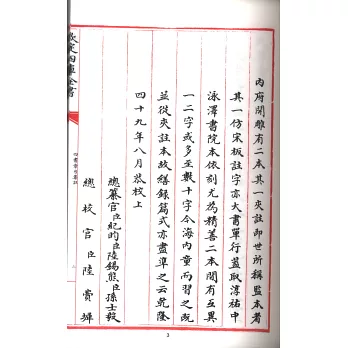 內府開雕有二本其一夾註即世所稱監本者
其一仿宋板註字亦大書單行蓋取淳祐中
泳澤書院本依刻尤為精善二本間有互異
一二字或多至數十字今海內童而習之既
並從夾註本故繕錄篇式亦盡準之云乾隆
四十九年八月恭校上
總纂官臣紀昀臣陸錫熊臣孫士毅
總校官臣陸費墀
欽定四庫全書
四書章句集註
3